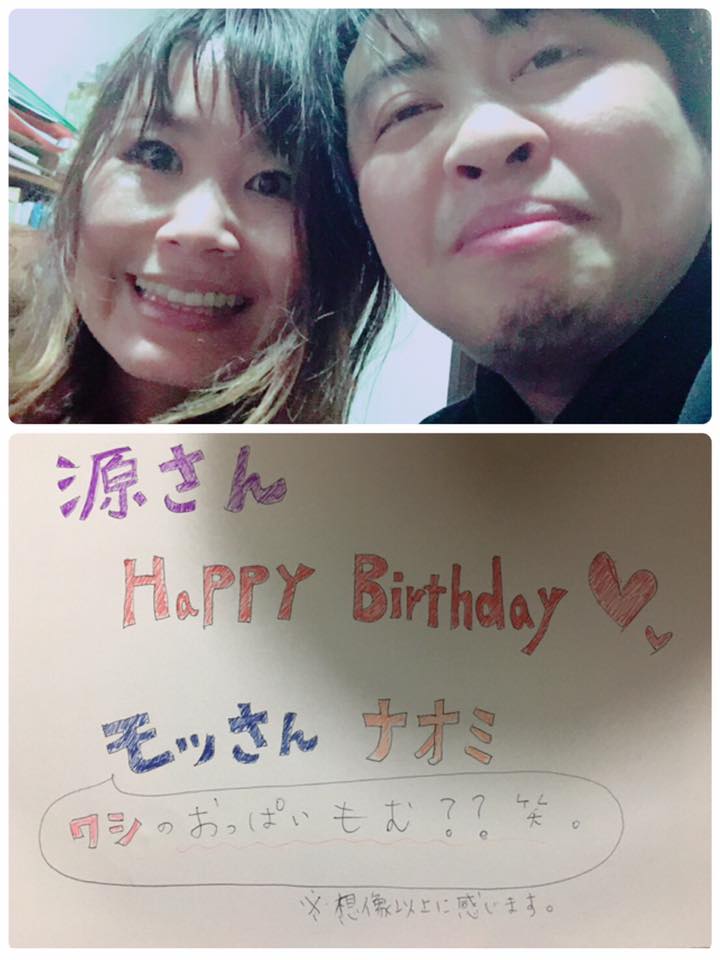 源さん
HaPPY Birthday
モッさん ナオミ
ワシのおっぱいもむ??笑。
※想像以上に感じます。